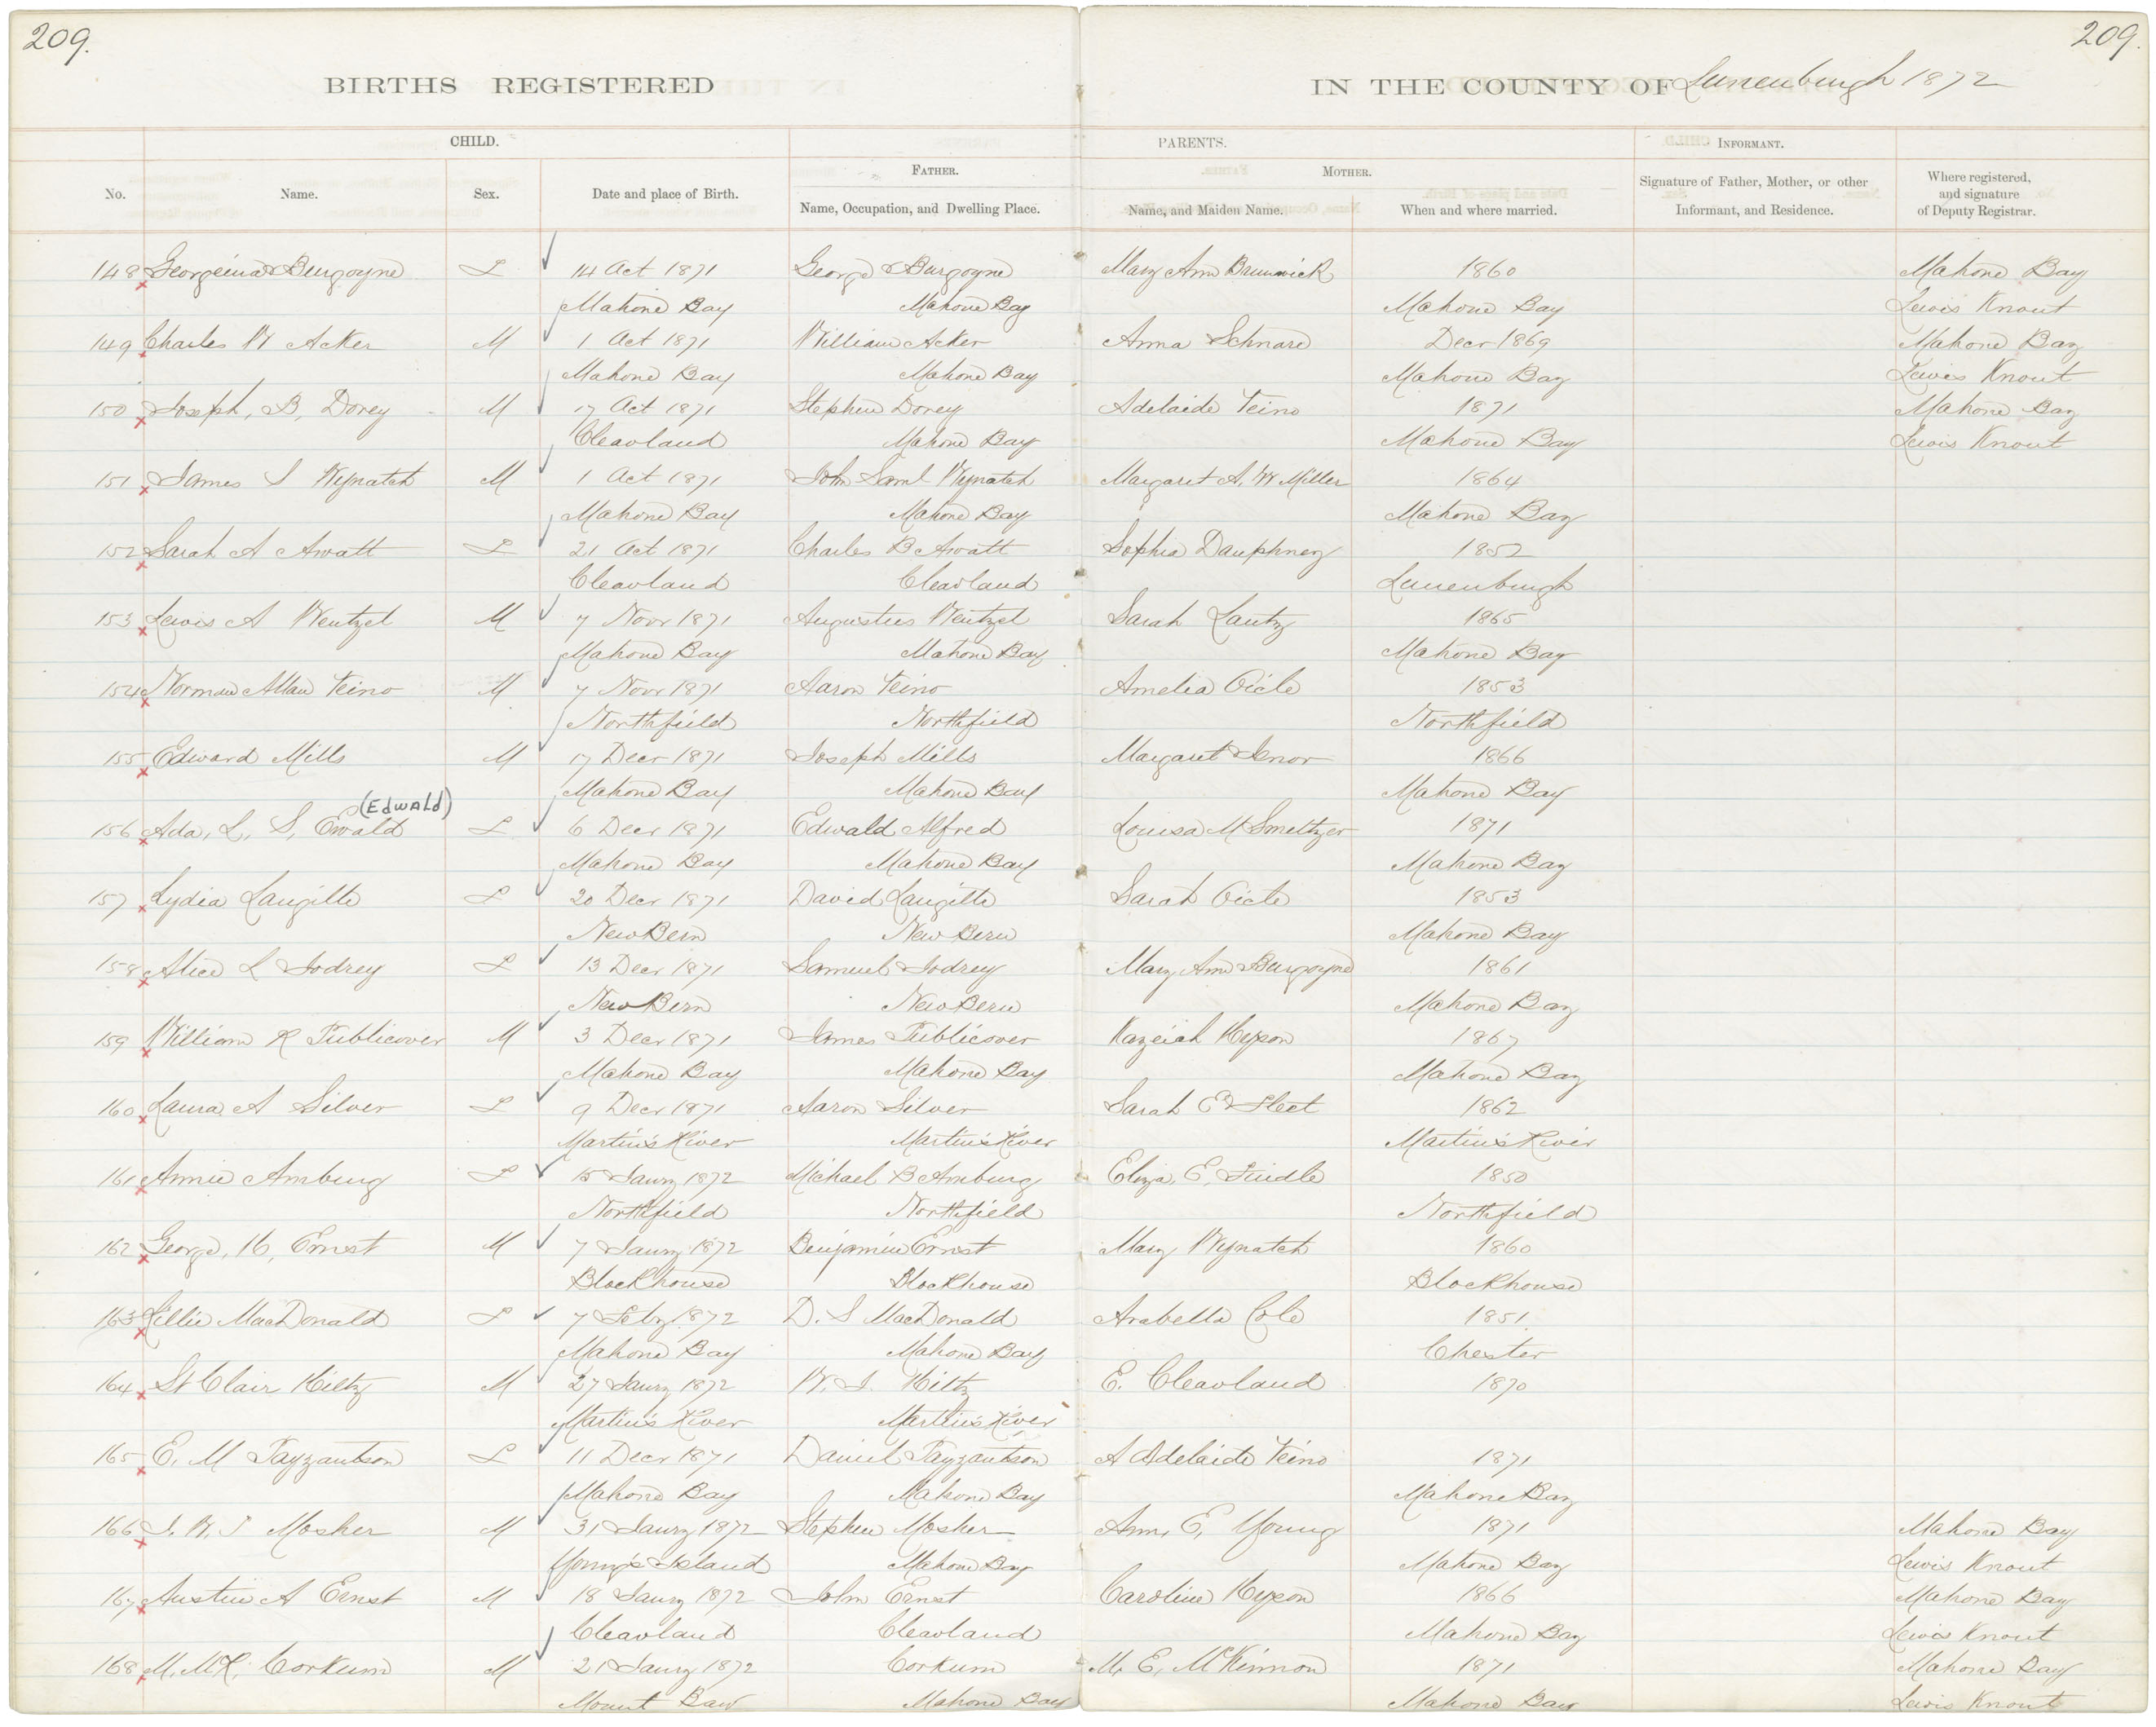 209. 209.
BIRTHS REGISTERED IN THE COUNTY OF Lunenburgh 1872
CHILD. PARENTS. INFORMANT.
FATHER. MOTHER.
No. Name. Sex. Date and place of Birth. Name, Occupation, and Dwelling Place. Name, and Maiden Name. When and where married. Signature of Father, Mother, or other Informant, and Residence. Where registered, and signature of Deputy Registrar.
148 Georgeina Burgoyne F 14 Oct 1871 George Burgoyne Mary Ann Brunwick 1860 Mahone Bay
Mahone Bay Mahone Bay Mahone Bay Lewis Knout
149 Charles W Acker M 1 Oct 1871 William Acker Anna Schnare Decr 1869 Mahone Bay
Mahone Bay Mahone Bay Mahone Bay Lewis Knout
150 Joseph, B, Dorey M 17 Oct 1871 Stephen Dorey Adelaide Veino 1871 Mahone Bay
Cleavland Mahone Bay Mahone Bay Lewis Knout
151 James S Wynatch M 1 Oct 1871 John Saml Wynatch Margaret A. W Miller 1864
Mahone Bay Mahone Bay Mahone Bay
152 Sarah A Awatt F 21 Oct 1871 Charles B Awatt Sophia Dauphney 1852
Cleavland Cleavland Lunenburgh
153 Lewis A Wentzel M 7 Novr 1871 Augustus Wentzel Sarah Lantz 1865
Mahone Bay Mahone Bay Mahone Bay
154 Norman Allan Veino M 7 Novr 1871 Aaron Veino Amelia Oicle 1853
Northfield Northfield Northfield
155 Edward Mills M 17 Decr 1871 Joseph Mills Margaret 1866
Mahone Bay Mahone Bay Mahone Bay
(Edwald)
156 Ada, L, S, Ewald F 6 Decr 1871 Edwald Alfred Louisa M Smeltzer 1871
Mahone Bay Mahone Bay Mahone Bay
157 Lydia Langille F 20 Decr 1871 David Langille Sarah Oicle 1853
New Bern New Bern Mahone Bay
158 Alice L Jodrey F 13 Decr 1871 Samuel Jodrey Mary Ann Burgoyne 1861
New Bern New Bern Mahone Bay
159 William R Publicover M 3 Decr 1871 James Publicover Kazeiah Hyson 1867
Mahone Bay Mahone Bay Mahone Bay
160 Laura A Silver F 9 Decr 1871 Aaron Silver Sarah E Fleet 1862
Martin's River Martin's River Martin's River
161 Annie Amburg F 15 Jany 1872 Michael B Amburg Eliza, E, 1850
Northfield Northfield Northfield
162 George, H, Ernst M 7 Jany 1872 Benjamin Ernst Mary Wynatch 1860
Blockhouse Blockhouse Blockhouse
163 Lillie MacDonald F 7 Feby 1872 D. S MacDonald Arabella Cole 1851
Mahone Bay Mahone Bay Chester
164 St Clair Hiltz M 27 Jany 1872 W. J. Hiltz E. Cleavland 1870
Martin's River Martin's River
165 E, M Payzantson F 11 Decr 1871 Daniel Payzantson A Adelaide Veino 1871
Mahone Bay Mahone Bay Mahone Bay
166 J. W. J Mosher M 31 Jany 1872 Stephen Mosher Ann, E, Young 1871 Mahone Bay
Young's Island Mahone Bay Mahone Bay Lewis Knout
167 Austin A Ernst M 18 Jany 1872 John Ernst Caroline Hyson 1866 Mahone Bay
Cleavland Cleavland Mahone Bay Lewis Knout
168 M. Corkum M 21 Jany 1872 Corkum M. E, McKinnon 1871 Mahone Bay
Mount Mahone Bay Mahone Bay Lewis Knout